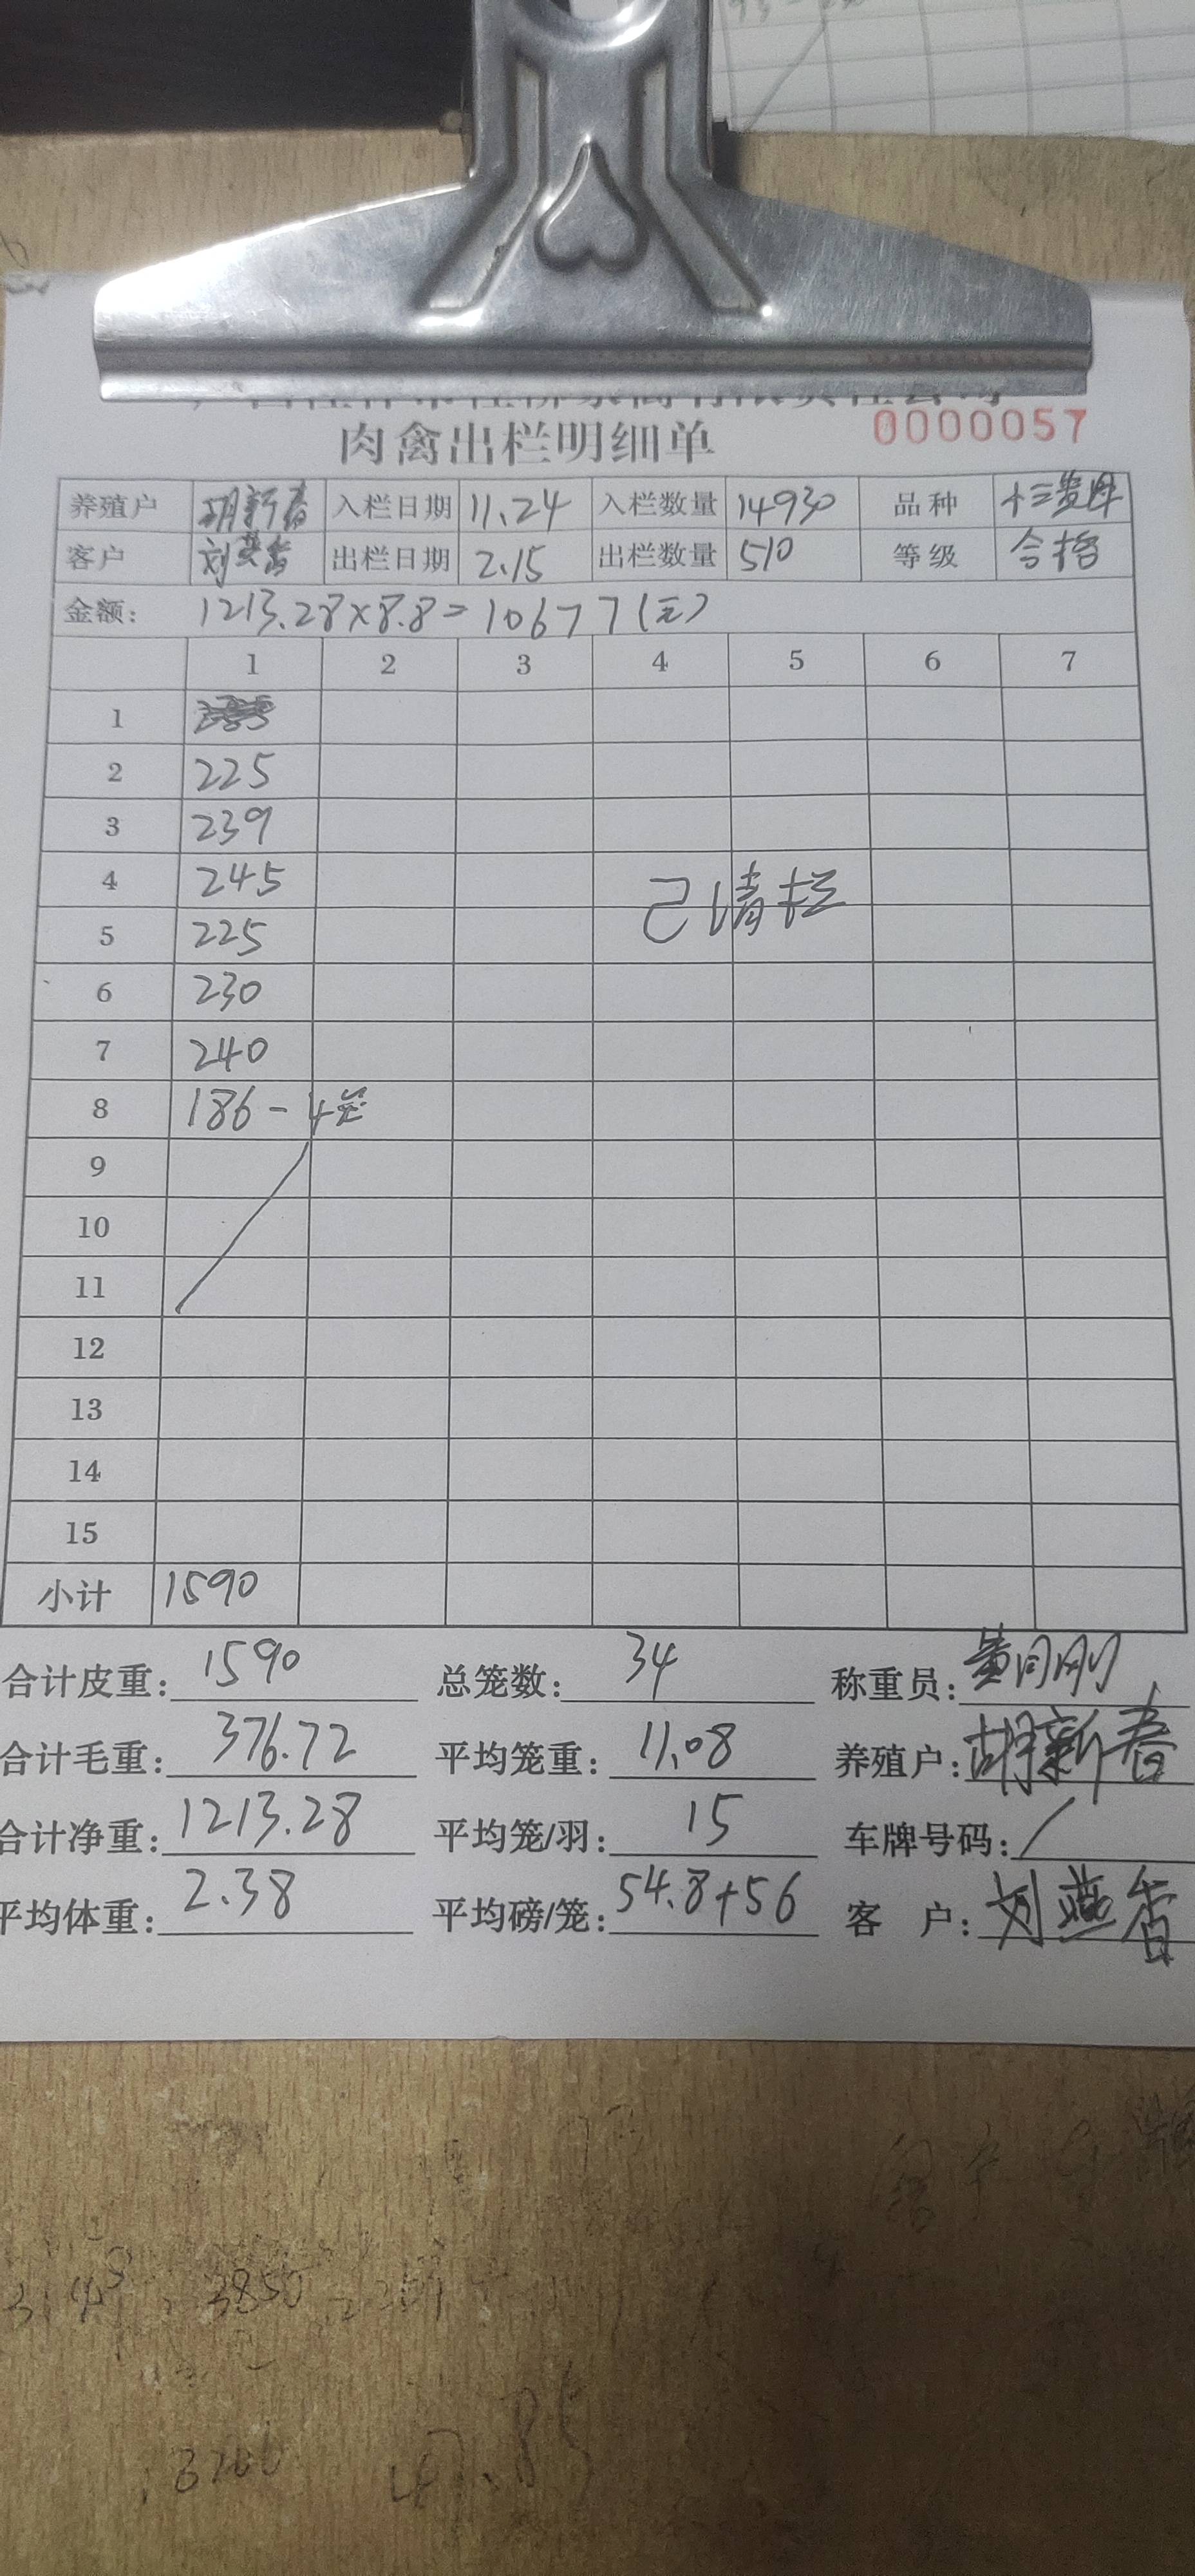 0000057
肉禽出栏明细单
养殖户 胡新春 入栏日期 11.24 入栏数量 14930 品种
客户 刘燕香 出栏日期 2.15 出栏数量 510 等级 合格
金额: 1213.28×8.8=10677(元)
1 2 3 4 5 6 7
1
2 225
3 239
4 245
已清栏
5 225
6 230
7 240
8 186-4笼
9
10
11
12
13
14
15
小计 1590
合计皮重: 1590 总笼数: 34 称重员:
合计毛重: 376.72 平均笼重: 11.08 养殖户: 胡新春
合计净重: 1213.28 平均笼/羽: 15 车牌号码: /
平均体重: 2.38 平均磅/笼: 54.8+56 客 户: 刘燕香